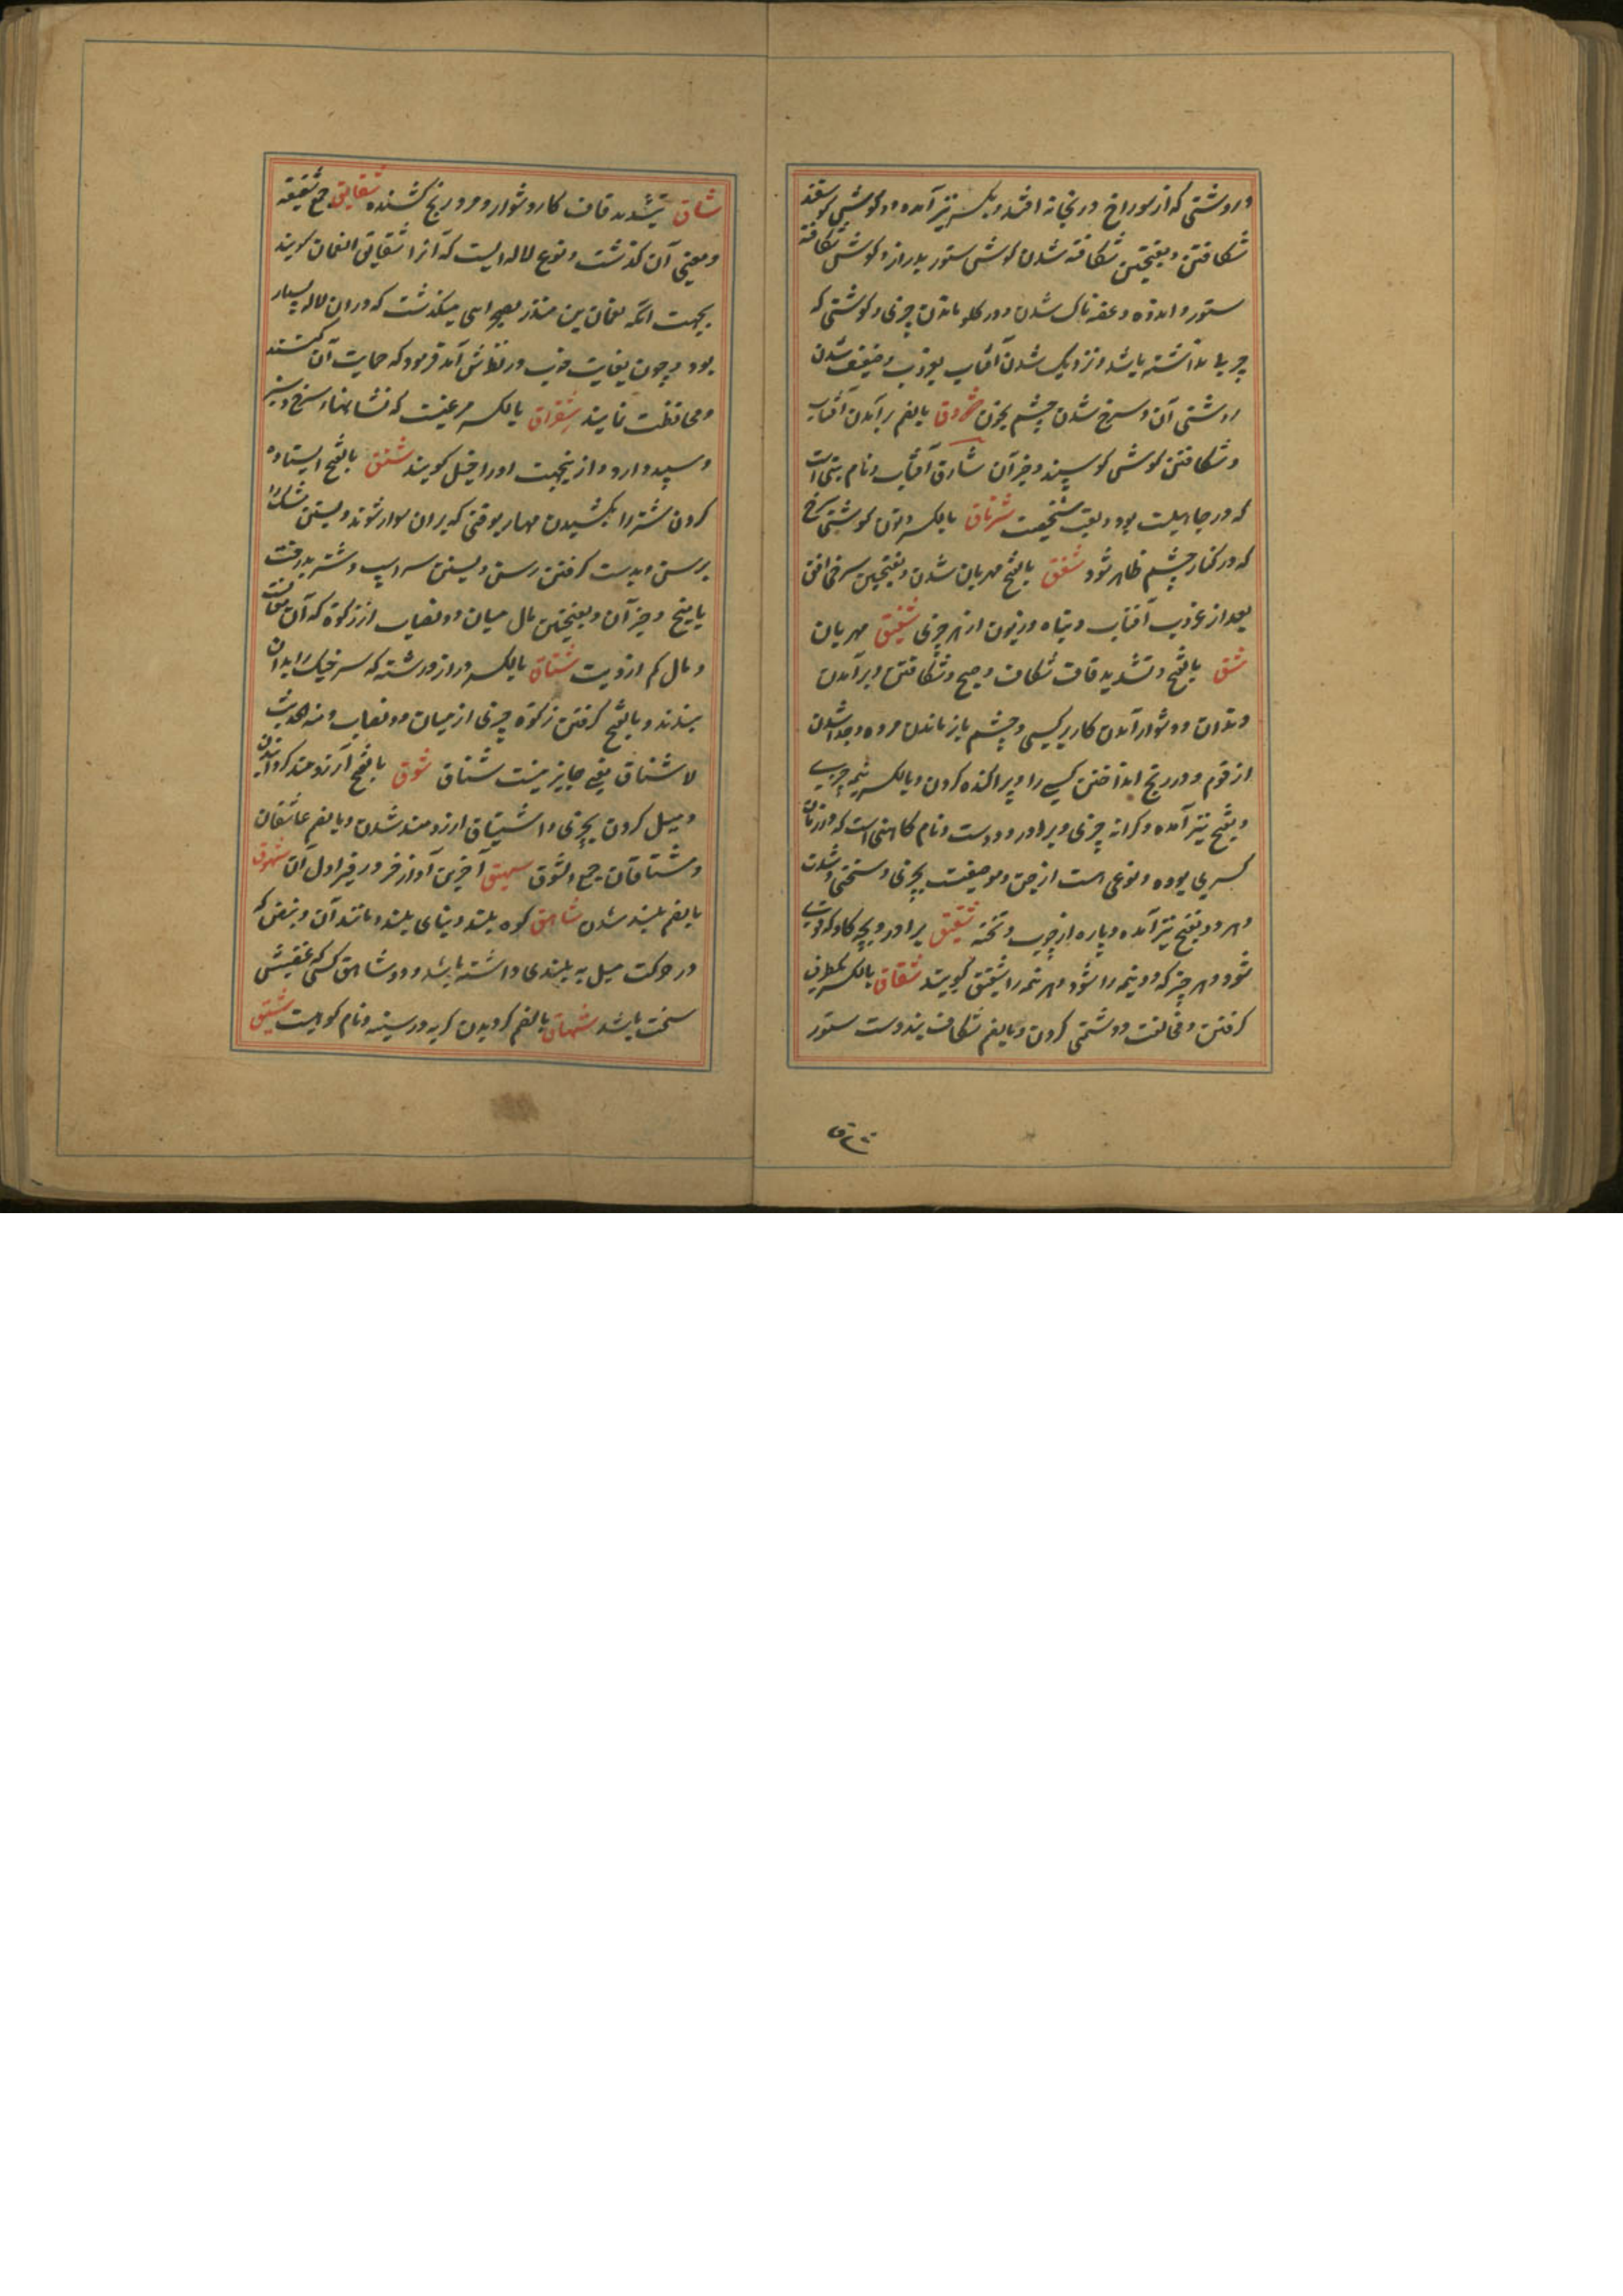 و روشنی که از سوراخ در بخانه افتد و بکسر نیز آمده و گوش گوسفند
شکافتن و بفتحتین شکافته شدن گوش ستور بدرازی و گوش شکافته
ستور و اندوه و غصه ناک شدن و در گلو ماندن چیزی و گوشتی که
چربی نداشته باشد و نزدیک شدن آفتاب بغروب و ضعیف شدن
روشنی آن و سرخ شدن چشم بخون شروق بالضم برآمدن آفتاب
و شکافتن گوش گوسپند و جز آن شارق آفتاب و نام بتی است
که در جاهلیت بود و لقب شخصیت شرناق بالکسر و نون گوشتی سرخ
که در کنار چشم ظاهر شود شفق بالفتح مهربان شدن و بفتحتین سرخی افق
بعد از غروب آفتاب و تباه و زبون از هر چیزی شفیق مهربان
شق بالفتح و تشدید قاف شکاف و صبح و شکافتن و برآمدن
دندان و دشوار آمدن کار بر کسی و چشم باز ماندن مرده و جدا شدن
از قوم و در رنج انداختن کسی را و پراکنده کردن و بالکسر نیمه چیزی
و بفتح نیز آمده و کرانه چیزی و برادر و دوست و نام کاهنی است که در زمان
کسری بوده و نوعی است از جن و موضعیست بچیزی و سختی و شدت
و هر دو بفتح نیز آمده و پاره از چوب و تخته شقیق برادر و بچه گاو که قوی
شود و هر چیز که دو نیمه را شود هر نیمه را شقیق گویند شقاق بالکسر بکطرف
گرفتن و مخالفت و دشمنی کردن و بالضم شکاف بند دست ستور
شاق بتشدید قاف کار دشوار و مرد رنج کشنده شقایق جمع شقیقه
و معنی آن گذشت و نوع لاله ایست که آنرا شقایق النعمان گویند
بجهت آنکه نعمان بن منذر بصحرائی میگذشت که در آن لاله بسیار
بود و چون بغایت خوب در نظرش آمد فرمود که حمایت آن کنند
و محافظت نمایند شقراق بالکسر مرغیست که نشانها سرخ و سبز
و سپید دارد و ازینجهت اورا اخیل گویند شنق بالفتح ایستاده
کردن شتر را بکشیدن مهار بوقتی که بر آن سوار شوند و بستن مشک را
برسن و بدست گرفتن رسن و بستن سر اسپ و شتر بدرخت
یا میخ و جز آن و بفتحتین مال میان دو نصاب از زکوة که آن معاف
و مال کم از دیت شناق بالکسر دراز و رشته که سر خیک را بدان
بندند و بالفتح گرفتن زکوة چیزی از میان دو نصاب و منه الحدیث
لا شناق یعنی جایز نیست شناق شوق بالفتح آرزومند گردانیدن
و میل کردن بچیزی و اشتیاق آرزومند شدن و بالضم عاشقان
و مشتاقان جمع اشوق شهیق آخرین آواز خر و زفیر اول آن شهوق
بالضم بلند شدن شاهق کوه بلند و بنای بلند و مانند آن و نبض که
در حرکت میل به بلندی داشته باشد و ذو شاهق کسی که غضبش
سخت باشد شهاق بالضم گردیدن گریه در سینه و نام کوهیست شیق